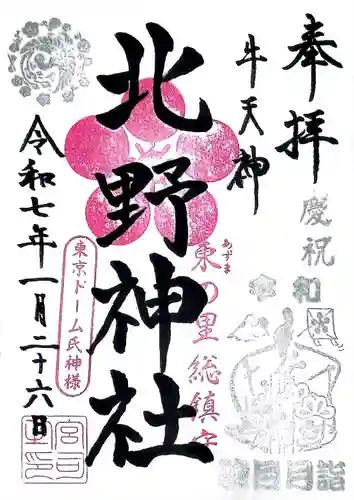 奉拝
牛天神
北野神社
令和七年一月二十六日
慶祝
令和
東の里総鎮守
あずま
東京ドーム氏神様
宮司之印